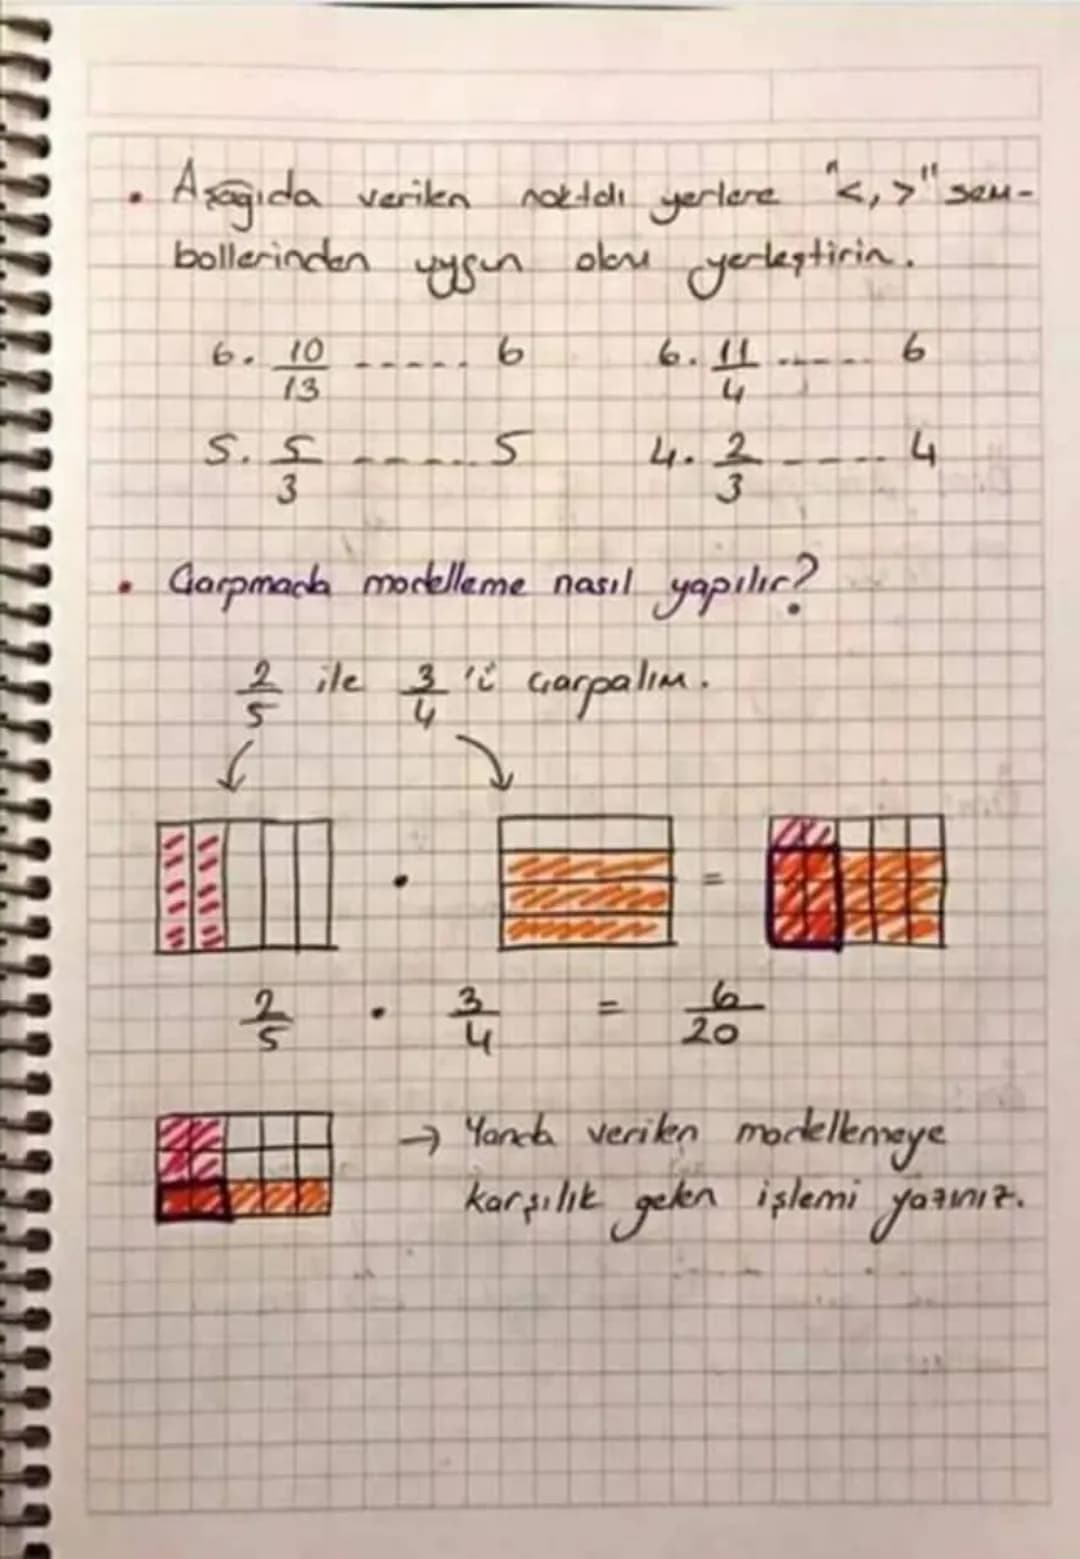 • Aşağıda verilen noktalı yerlere "<, >" sem-
bollerinden uygun olanı yerleştirin.
6 . 10/13 ...... 6    6 . 11/4 ...... 6
5 . 5/3 ...... 5    4 . 2/3 ...... 4
• Çarpmada modelleme nasıl yapılır?
2/5 ile 3/4 'ü çarpalım.
. =
2/5 . 3/4 = 6/20
→ Yanda verilen modellemeye
karşılık gelen işlemi yazınız.